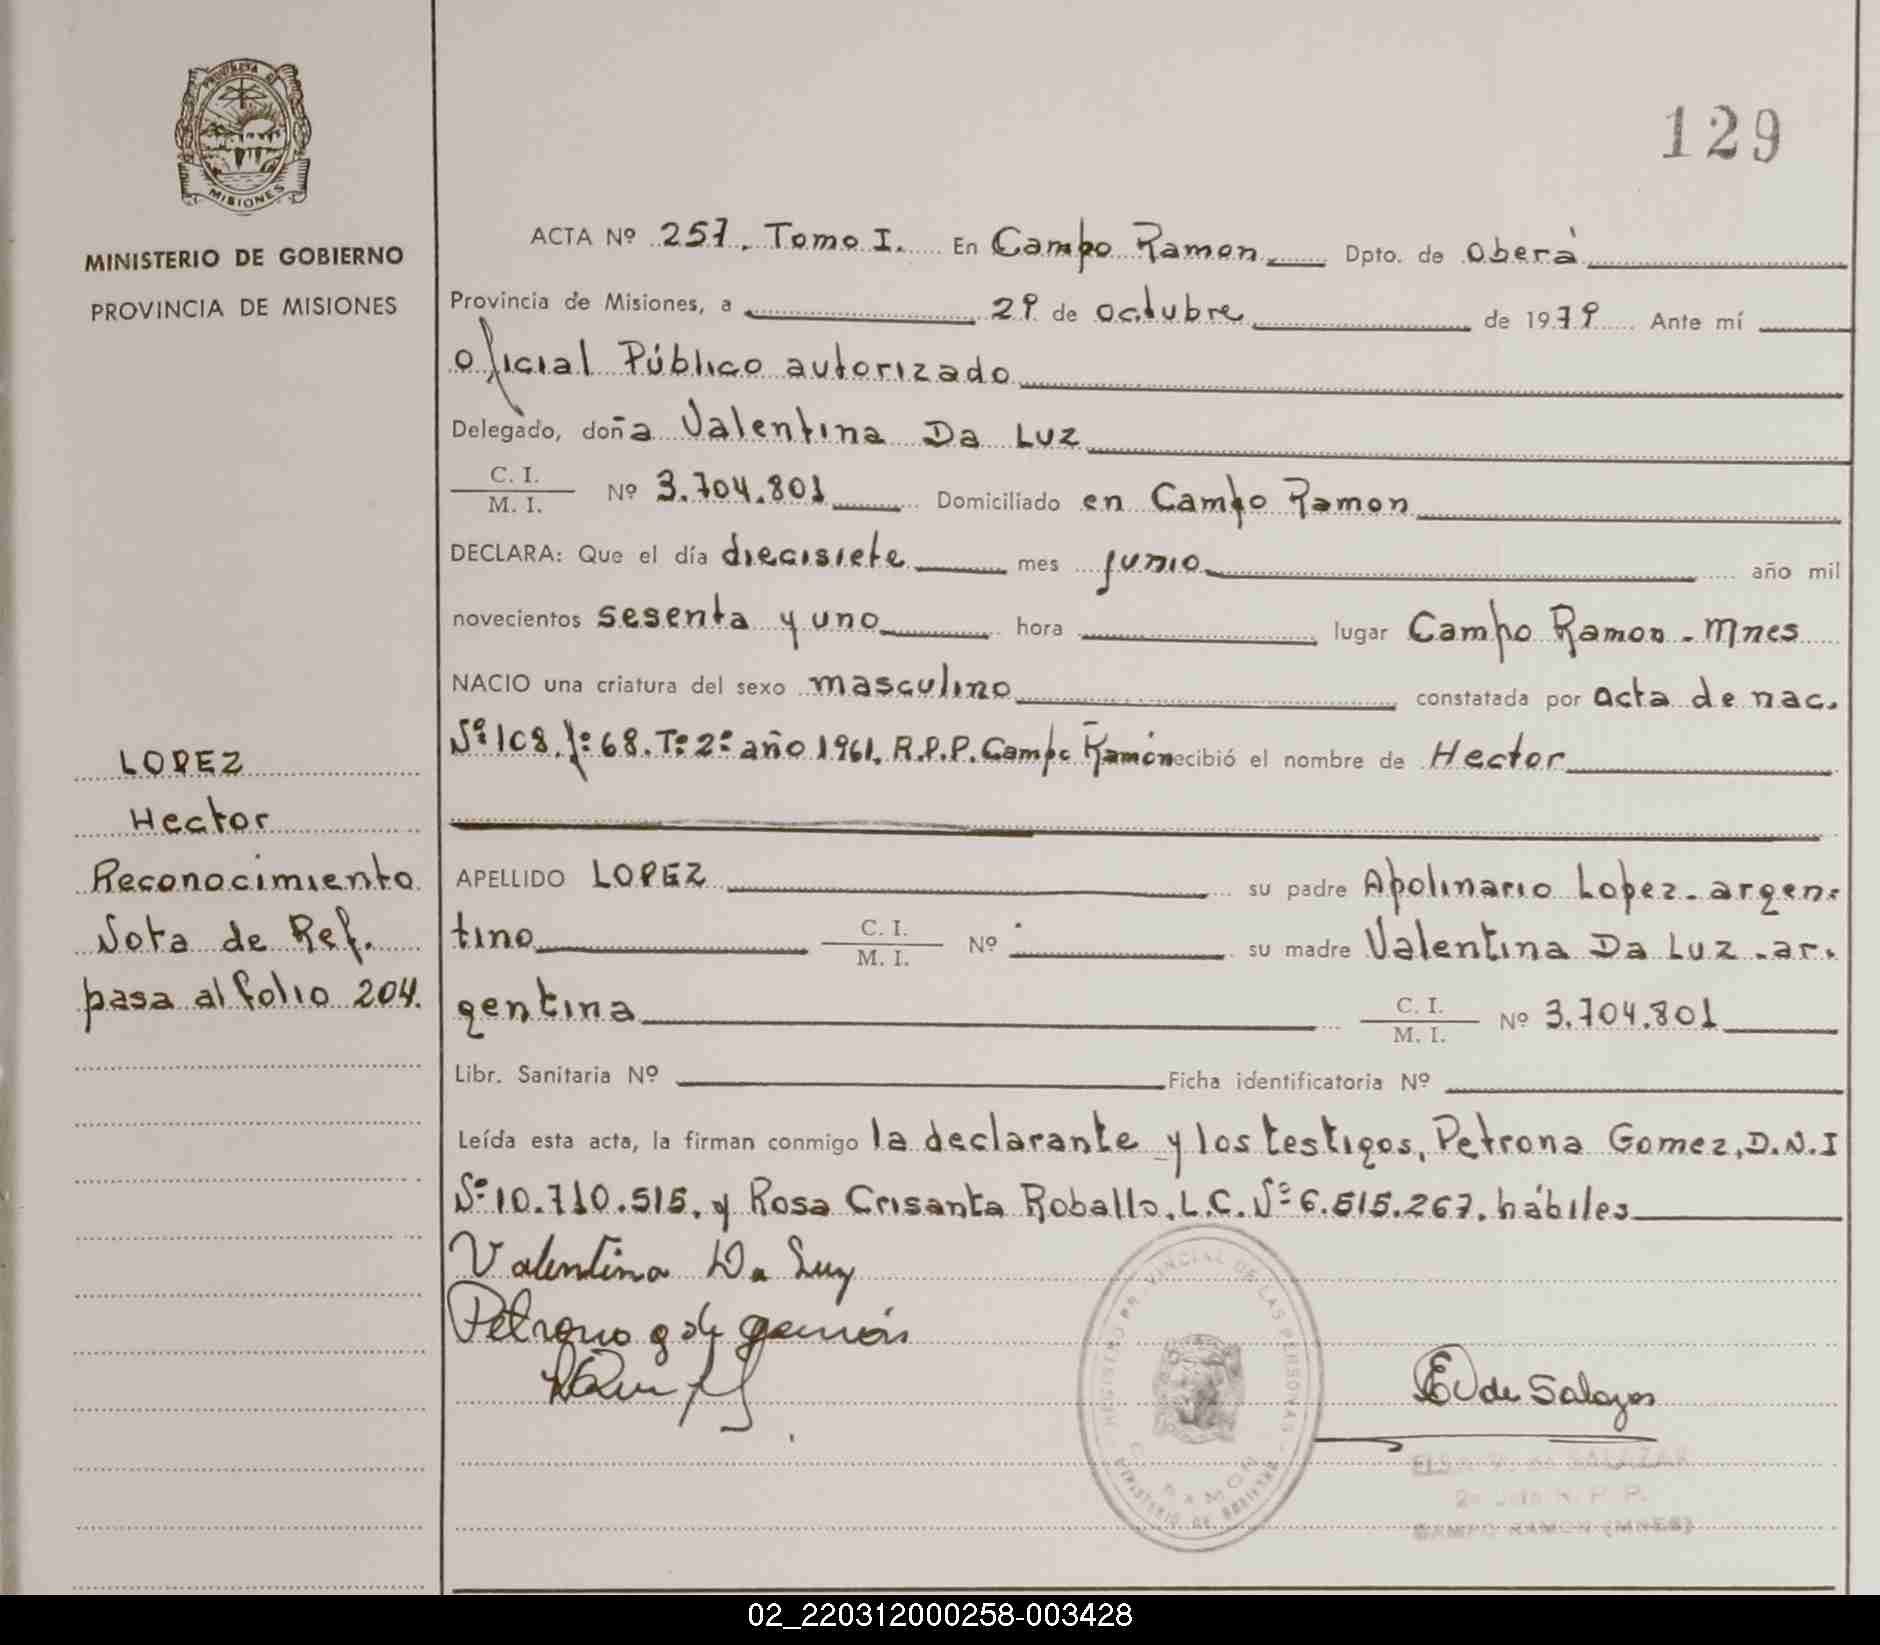 PROVINCIA DE
MISIONES
MINISTERIO DE GOBIERNO
PROVINCIA DE MISIONES
129
ACTA Nº 257. Tomo I. En Campo Ramon. Dpto. de Oberá
Provincia de Misiones, a 29 de octubre de 1979 Ante mí
oficial Público autorizado
Delegado, doña Valentina Da Luz
C. I.
M. I. Nº 3.704.801 Domiciliado en Campo Ramon
DECLARA: Que el día diecisiete mes junio año mil
novecientos sesenta y uno hora lugar Campo Ramon - Mnes
NACIO una criatura del sexo masculino constatada por acta de nac.
Nº 108. fº 68. Tº 2º año 1961. R.P.P. Campo Ramón ecibió el nombre de Hector
LOPEZ
Hector
Reconocimiento
Nota de Ref.
pasa al folio 204.
APELLIDO LOPEZ su padre Apolinario Lopez - argen-
tino C. I.
M. I. Nº su madre Valentina Da Luz - ar-
gentina C. I.
M. I. Nº 3.704.801
Libr. Sanitaria Nº Ficha identificatoria Nº
Leída esta acta, la firman conmigo la declarante y los testigos, Petrona Gomez, D.N.I
Nº 10.710.515. y Rosa Crisanta Roballo. L.C. Nº 6.515.267. hábiles
Valentina Da Luz
Petrona g de
E V de Salazar
REGISTRO PROVINCIAL DE LAS PERSONAS
C. RAMON
MINISTERIO DE GOBIERNO
ELSA V. de SALAZAR
R. P. P.
CAMPO RAMON (MNES)
02_220312000258-003428